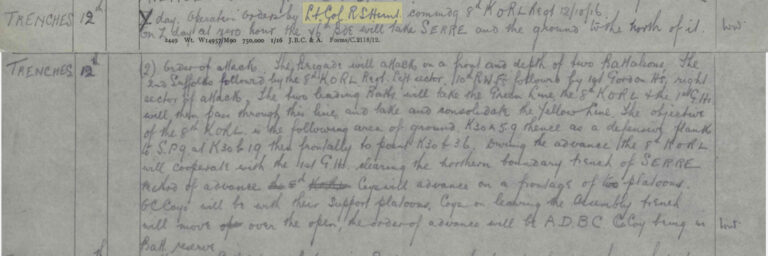 TRENCHES 12th Z day. Operation Orders by Lt. Col. R S Hunt commdg 8th K O R L Regt 12/10/16.
On Z day at zero hour the 76th BDE will take SERRE and the ground to the north of it
2449 Wt. W14957/M90 750,000 1/16 J.B.C. & A. Forms/C.2118/12.
TRENCHES 12th (2) Order of attack. The Brigade will attack on a front and depth of two Battalions. The
2nd Suffolks followed by the 8th K O R L Regt. left sector, 10th R.W.F. followed by 1st Gordon Hs, right
sector of attack. The two leading Batts will take the Green Line the 8th K O R L & the 1st G.Hs
will then pass through this line and take and consolidate the Yellow Line. The objective
of the 8th K O R L. is the following area of ground, K30 thence as a defensive flank
to S.P.9 at K30 then frontally to point K30 b 3.6. During the advance the 8th K O R L
will cooperate with the 1st G.Hs clearing the northern boundary trench of SERRE
method of advance Coys will advance on a frontage of two platoons.
O.C Coys will be with their support platoons. Coys on leaving the assembly trench
will move over the open, the order of advance will be A.D.B.C C Coy being in
Batt. reserve.